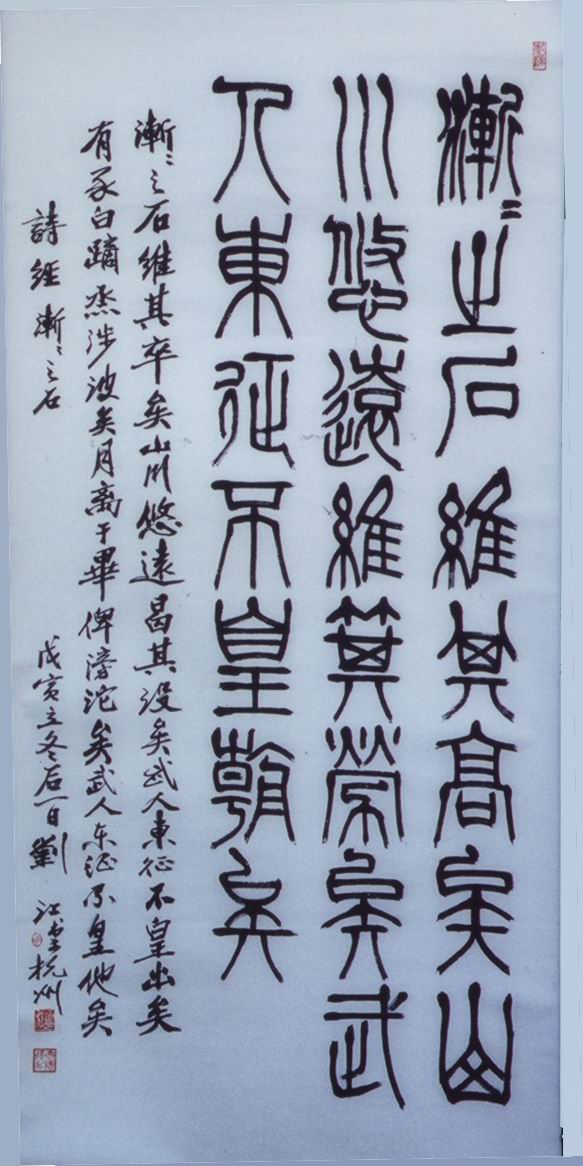 漸〻之石維其高矣山
川悠遠維其勞矣武
人東征不皇朝矣
漸〻之石維其卒矣山川悠遠曷其没矣武人東征不皇出矣
有豕白蹢烝涉波矣月离于畢俾滂沱矣武人东征不皇他矣
詩經漸〻之石 戊寅立冬后一日劉江書杭州